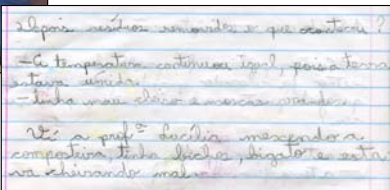 depois resíduos removidos o que aconteceu?
-A temperatura continuou igual, pois a terra
estava úmida.
-tinha mau cheiro e moscas voando.
Vi a profª Lucélia mexendo a
composteira, tinha bichos, bigato e esta-
va cheirando mal